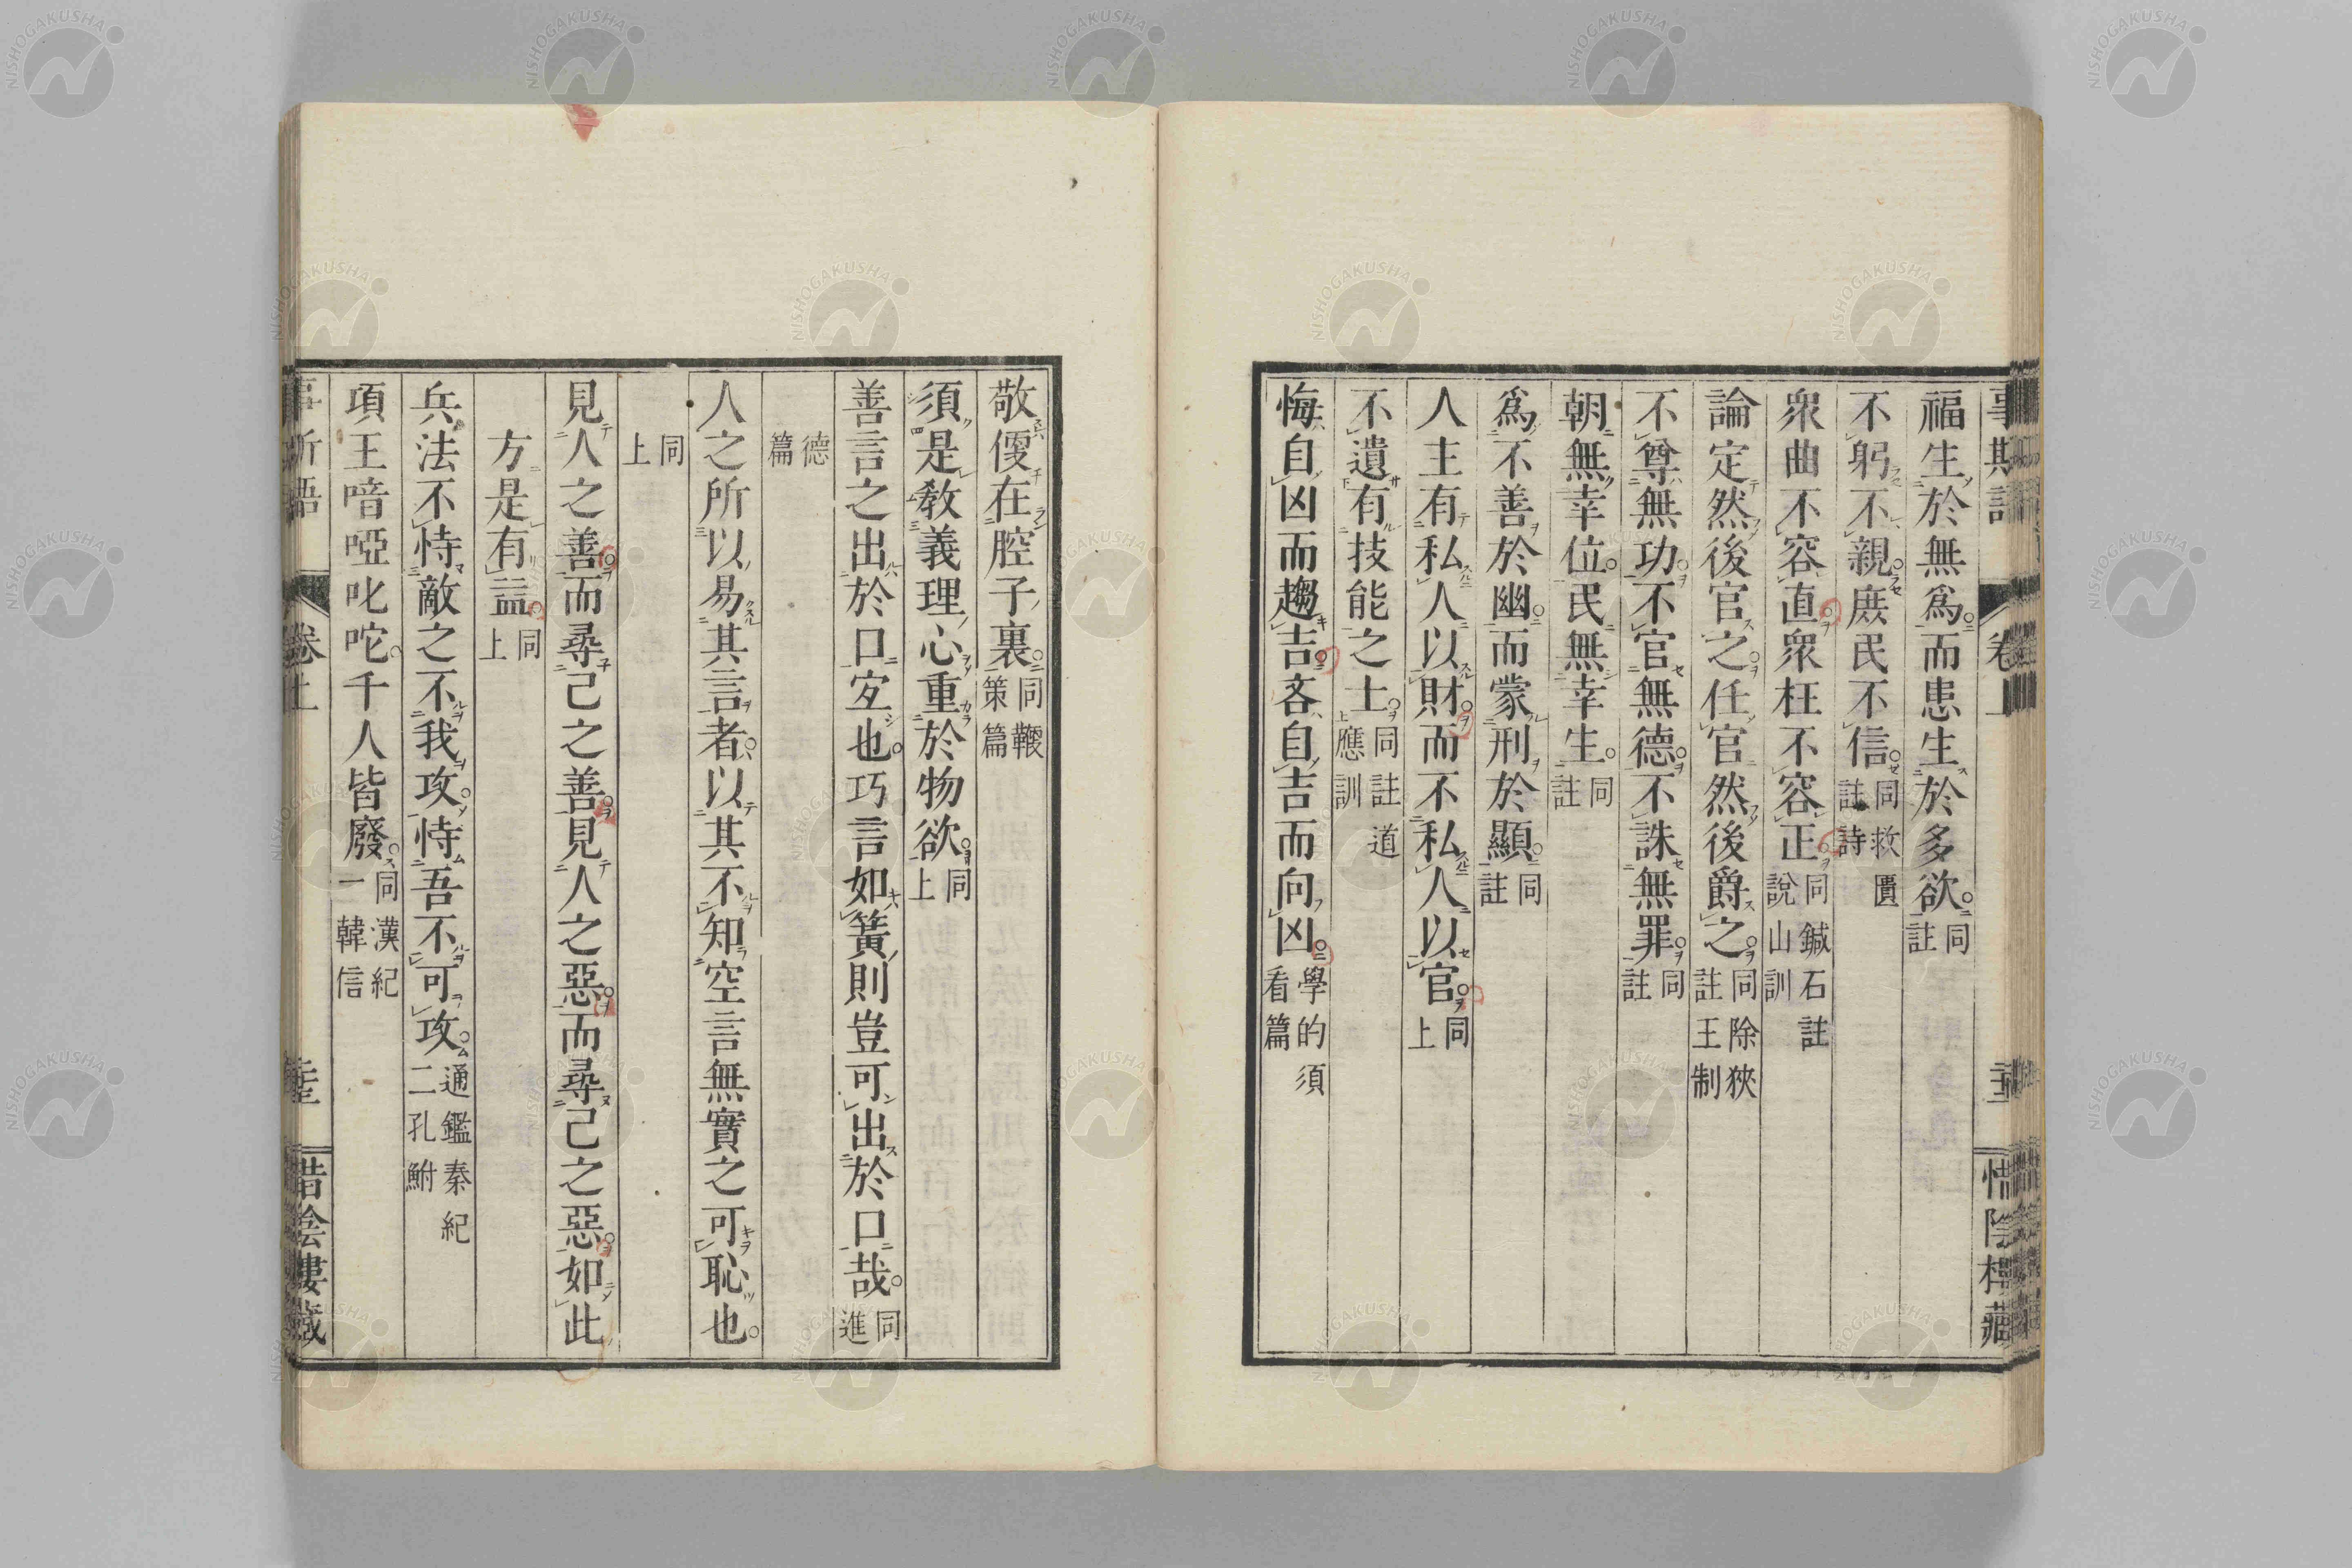 福生於無爲而患生於多欲同註
不躬不親庶民不信同救匱註詩
衆曲不容直衆枉不容正同鍼石註說山訓
論定然後官之任官然後爵之同除狹註王制
不尊無功不官無德不誅無罪同註
朝無幸位民無幸生同註
爲不善於幽而蒙刑於顯同註
人主有私人以財而不私人以官同上
不遺有技能之士同註道應訓
悔自凶而趨吉吝自吉而向凶學的須看篇
敬便在腔子裏同鞭策篇
須是教義理心重於物欲同上
善言之出於口宜也巧言如簧則豈可出於口哉同進
德篇
人之所以易其言者以其不知空言無實之可恥也
同上
見人之善而尋己之善見人之惡而尋己之惡如此
方是有益同上
兵法不恃敵之不我攻恃吾不可攻通鑑秦紀二孔鮒
項王喑啞叱咤千人皆廢同漢紀一韓信
卷上
惜陰樓藏
NISHOGAKUSHA